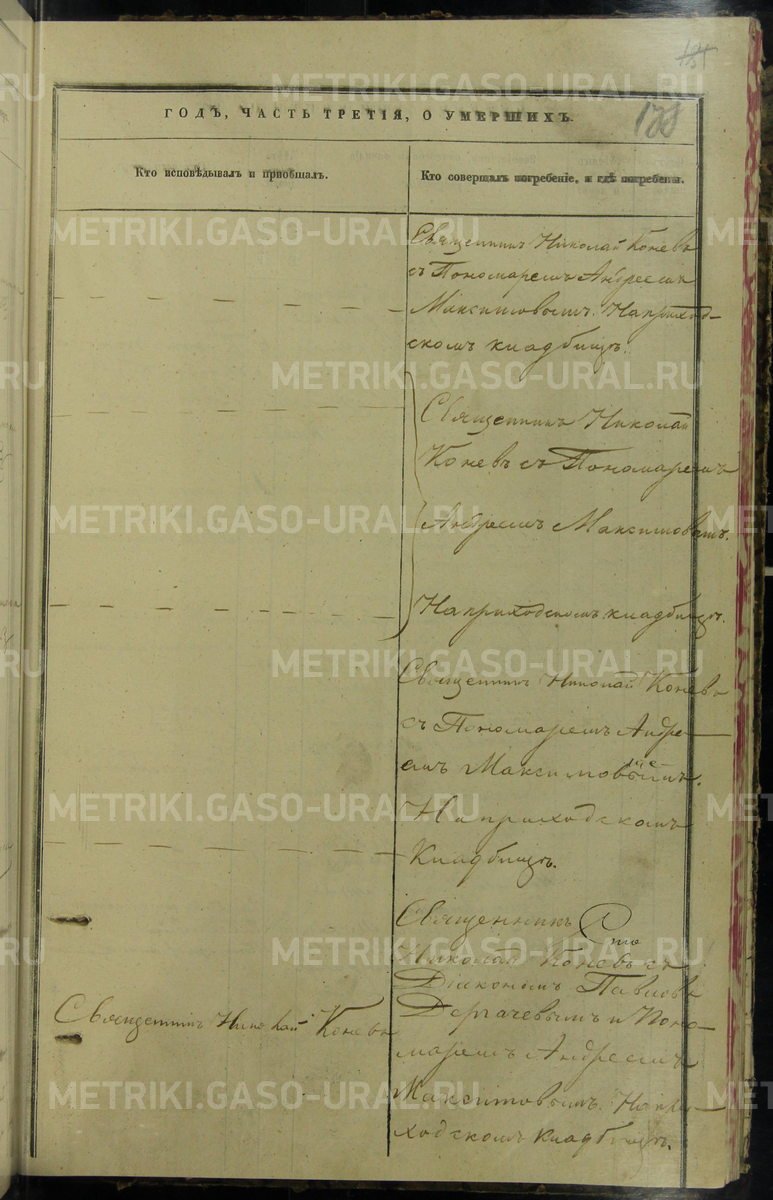 154
188
ГОДЪ, ЧАСТЬ ТРЕТІЯ, О УМЕРШИХЪ.
Кто исповѣдывалъ и пріобщалъ.
Кто совершалъ погребеніе, и гдѣ погребены.
Священникъ Николай Коневъ
съ Пономаремъ Андреемъ
Максимовымъ. На приход-
скомъ кладбищѣ.
Священникъ Николай
Коневъ съ Пономаремъ
Андреемъ Максимовымъ.
На приходскомъ кладбищѣ.
Священникъ Николай Коневъ
съ Пономаремъ Андре-
емъ Максимовымъ.
На приходскомъ
Кладбищѣ.
Священникъ
Николай Коневъ съ
Діакономъ Павломъ
Дергачевымъ и Поно-
маремъ Андреемъ
Максимовымъ. На при-
ходскомъ кладбищѣ.
Священникъ Николай Коневъ
METRIKI.GASO-URAL.RU